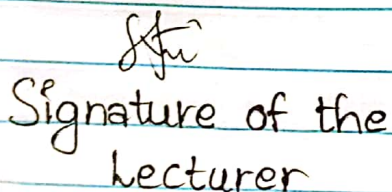 Signature of the
Lecturer